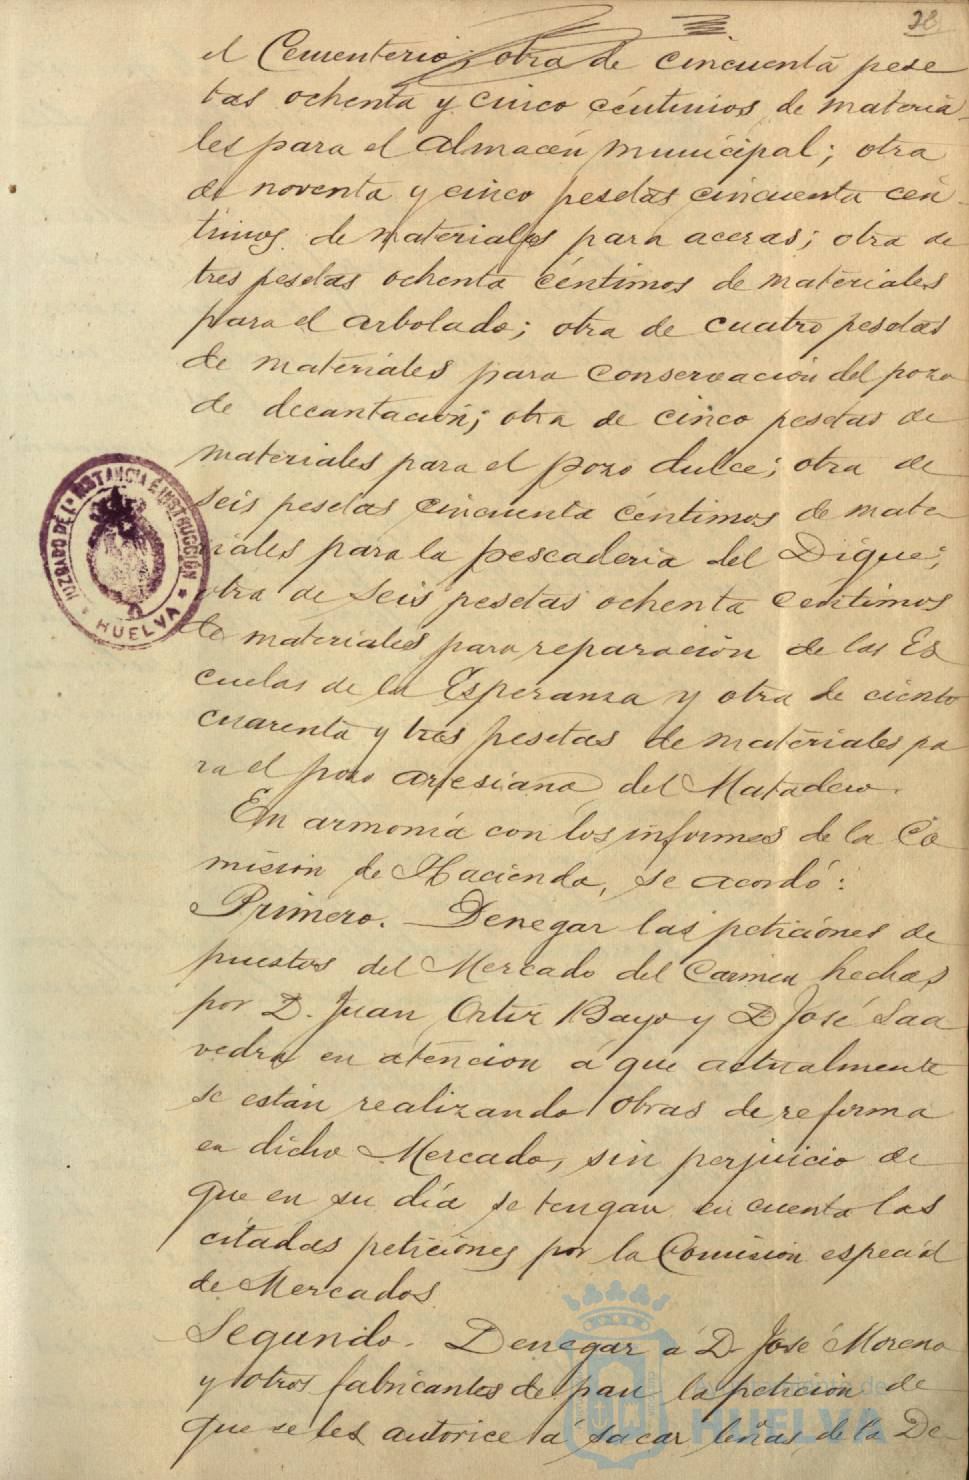 28
el Cementerio; otra de cincuenta pese
tas ochenta y cinco céntimos de materia-
les para el almacén municipal; otra
de noventa y cinco pesetas cincuenta cén-
timos de materiales para aceras; otra de
tres pesetas ochenta céntimos de materiales
para el arbolado; otra de cuatro pesetas
de materiales para conservación del pozo
de decantación; otra de cinco pesetas de
materiales para el pozo dulce; otra de
seis pesetas cincuenta céntimos de mate-
riales para la pescadería del Dique;
otra de seis pesetas ochenta céntimos
de materiales para reparación de las Es
cuelas de la Esperanza y otra de ciento
cuarenta y tres pesetas de materiales pa
ra el pozo artesiano del Matadero.
En armonía con los informes de la Co
misión de Hacienda, se acordó:
Primero. Denegar las peticiónes de
puestos del Mercado del Carmen hechas
por D. Juan Ortiz Bayo y D José Saa
vedra en atencion á que actualmente
se están realizando obras de reforma
en dicho Mercado, sin perjuicio de
que en su día se tengan en cuenta las
citadas peticiónes por la Comisión especial
de Mercados
Segundo. Denegar á D. José Moreno
y otros fabricantes de pan la petición de
que se les autorice á sacar leñas de la De-
JUZGADO DE 1ª INSTANCIA É INSTRUCCIÓN
* HUELVA *
Ayuntamiento de
HUELVA